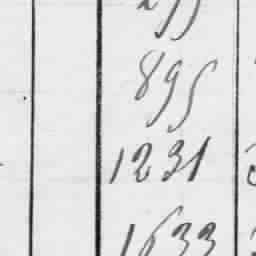 895
1231
1633